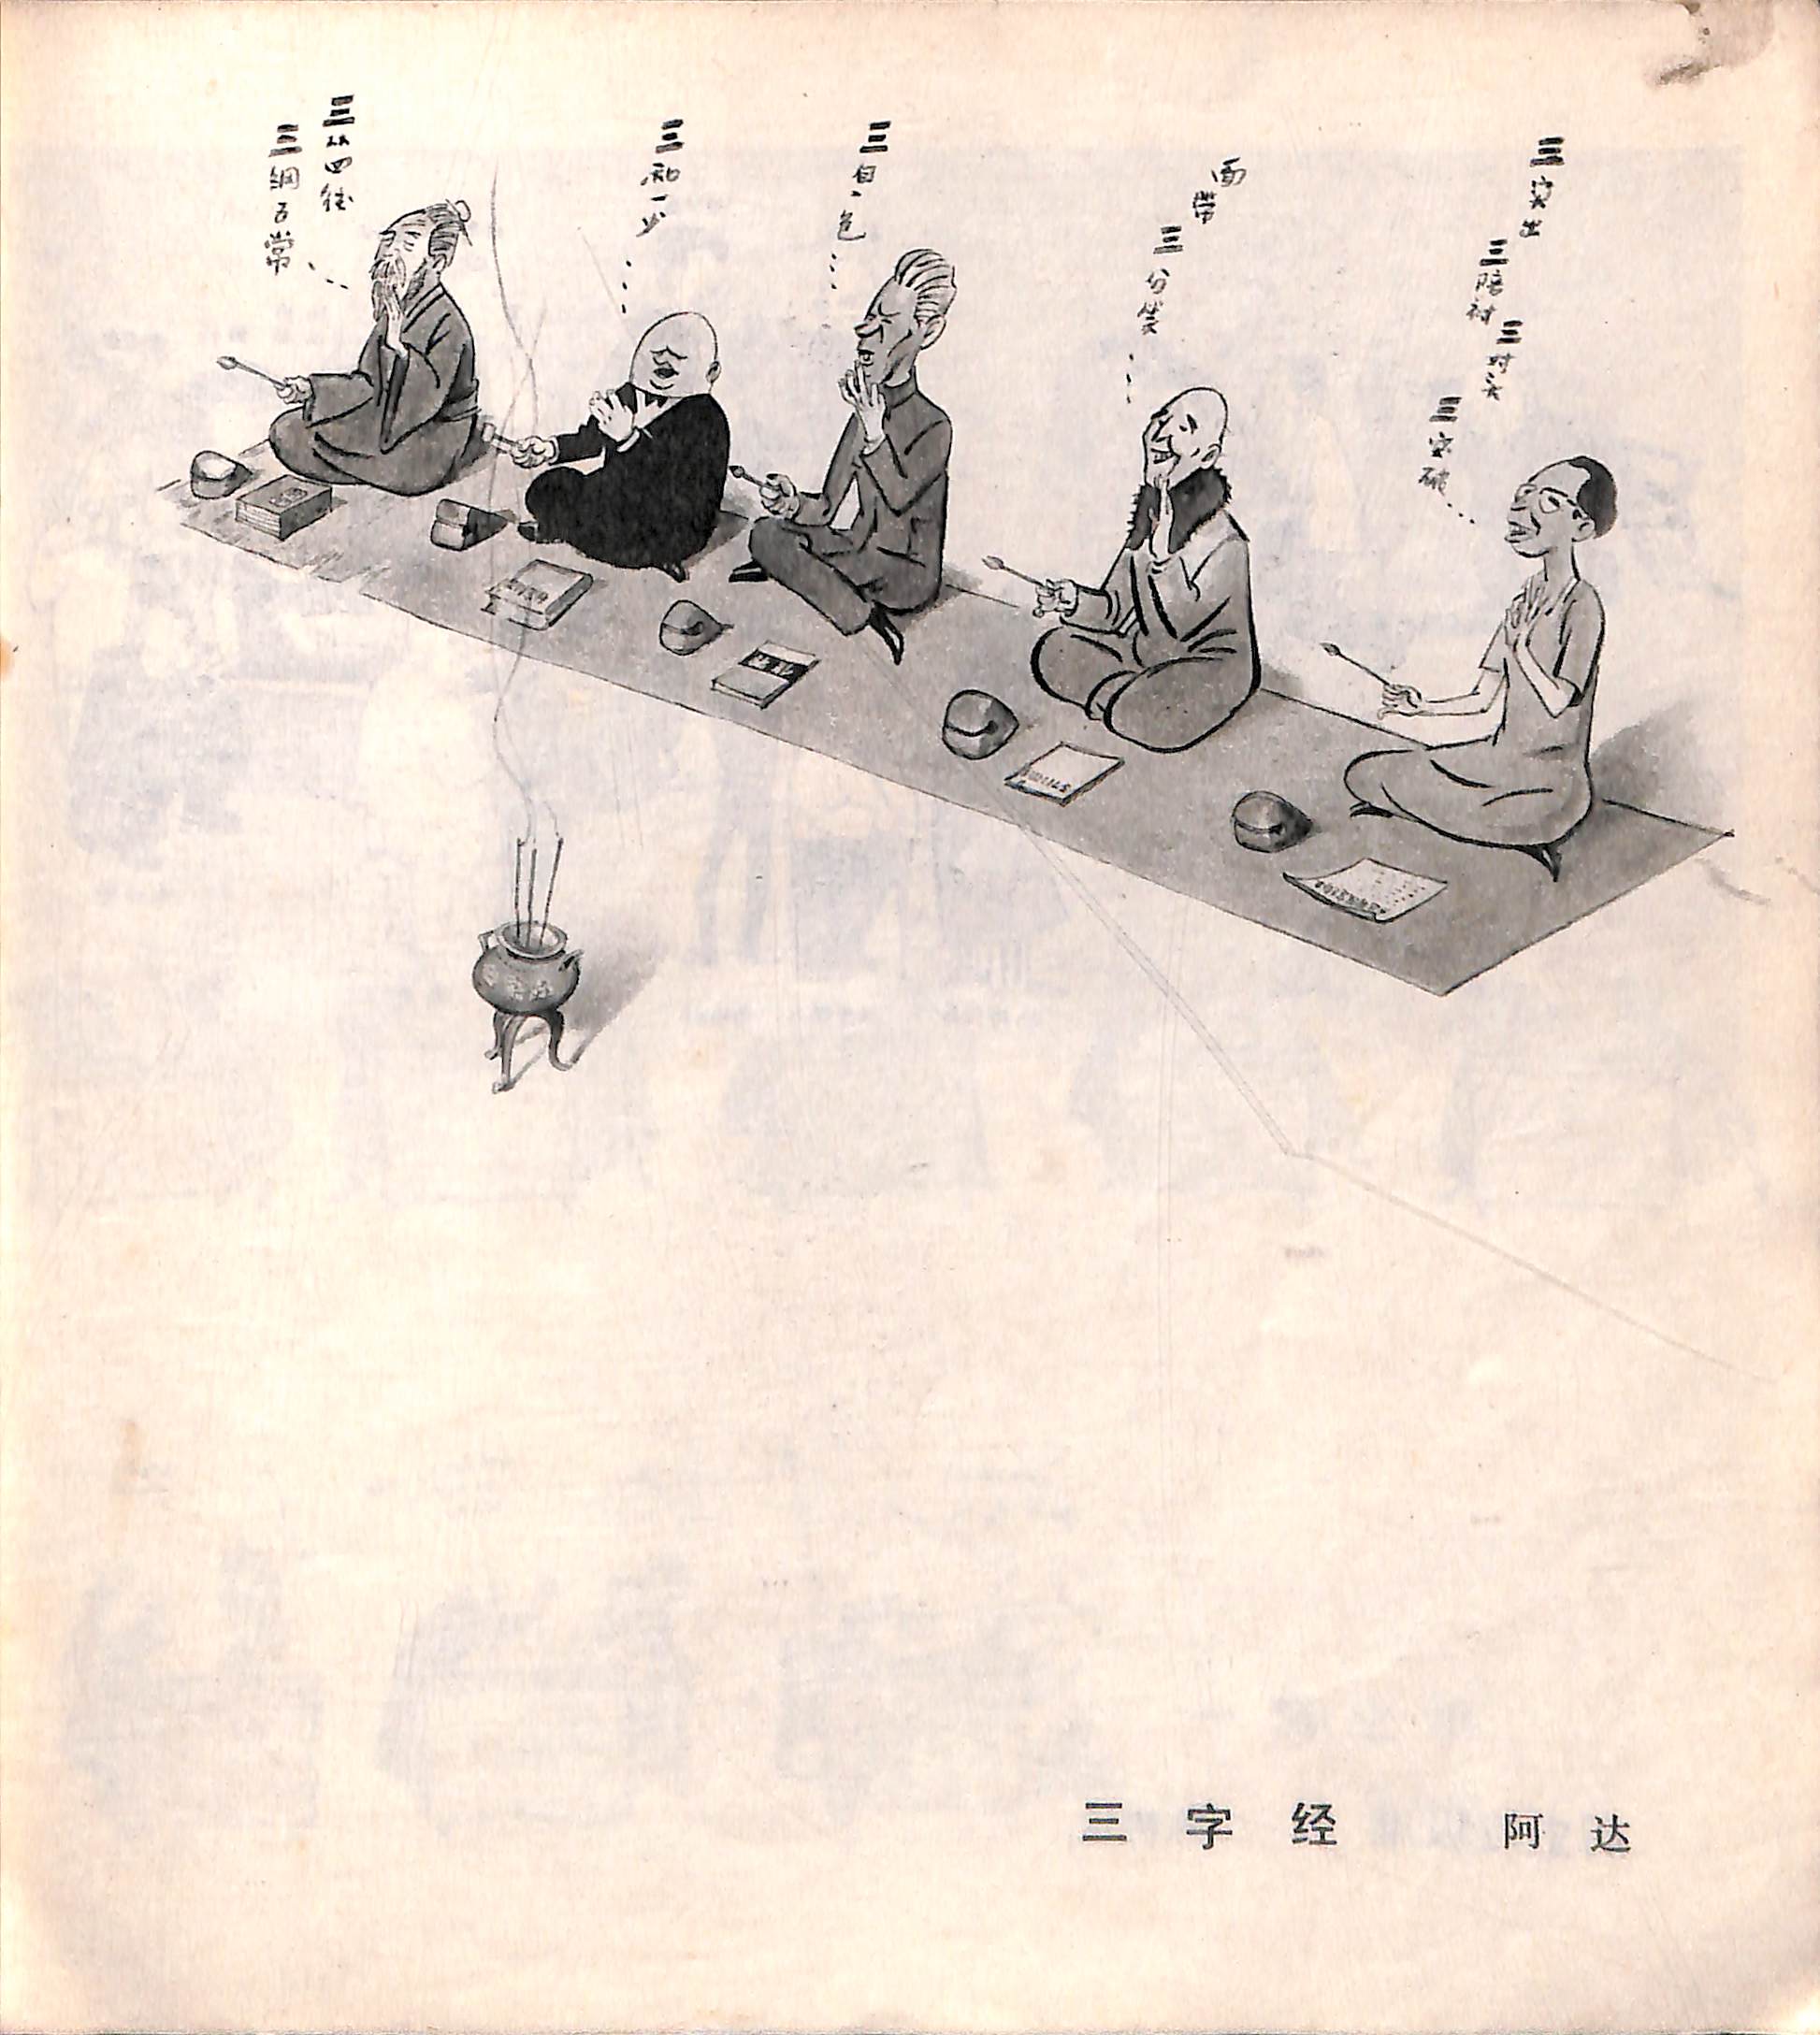 三从四德
三纲五常
三和一少
三自一包
面带三分笑
三突出
三陪衬
三对头
三突破
三字经 阿达